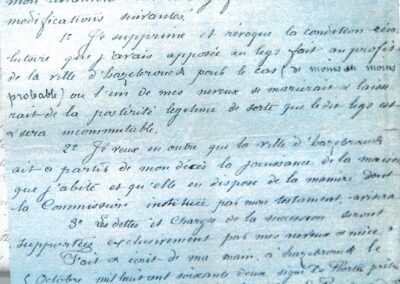 modifications suivantes.
1º Je supprime et révoque la condition réso
lutoire que j'avais apposée au legs fait au profit
de la ville d'hazebrouck pour le cas (de moins en moins
probable) ou l'un de mes neveux se marierait & laisse
rait de la postérité legitime de sorte que le dit legs est
& sera incommutable.
2º Je veux en outre que la ville d'hazebrouck
ait a partir de mon décès la jouissance de la maison
que j'abite et qu'elle en dispose de la manière dont
la Commission instituée par mon testament
3º Les dettes et Charges de la succession seront
supportées exclusivement par mes neveux & nièce.
Fait & écrit de ma main a hazebrouck le
Octobre mil huit cent soixante deux signé